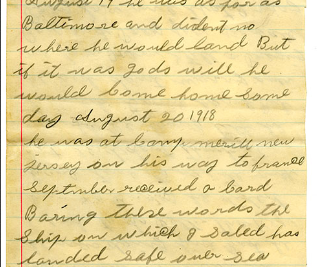 August 19 he was as far as
Baltimore and dident no
where he would land But
if it was gods will he
would come home some
day august 20 1918
he was at camp merrill new
jersey on his way to france
September received a card
Baring these words the
Ship on which I saled has
landed safe over sea